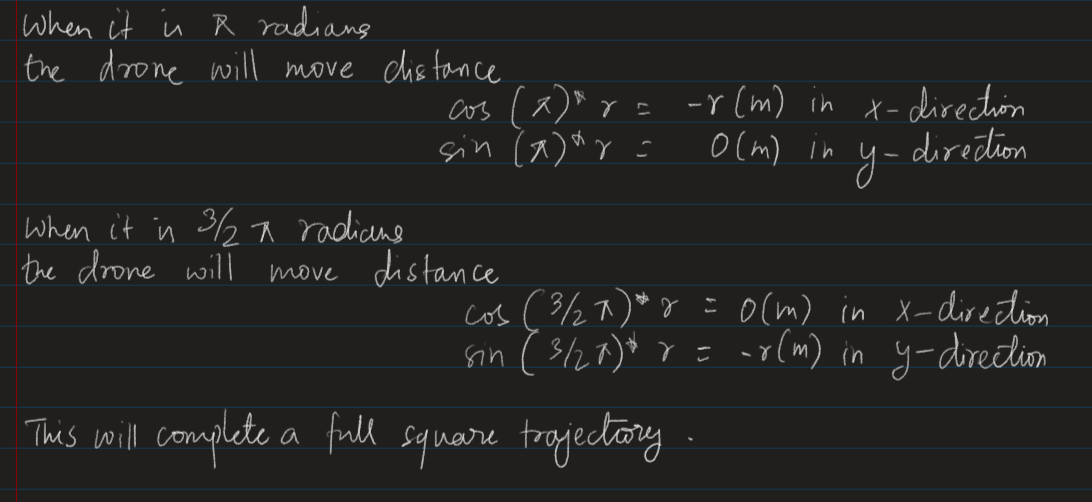 When it is π radians
the drone will move distance
cos (π)* r = -r(m) in x-direction
sin (π)* r = 0(m) in y-direction
When it is 3/2 π radians
the drone will move distance
cos (3/2 π)* r = 0(m) in x-direction
sin (3/2 π)* r = -r(m) in y-direction
This will complete a full square trajectory.